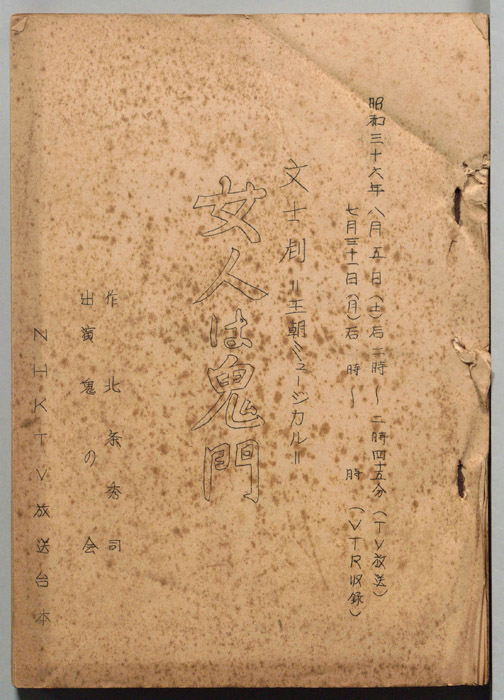 昭和三十六年八月五日（土）后二時〜二時四十五分（TV放送）
七月三十一日（月）后　時〜　時（VTR収録）
文士劇＝王朝ミュージカル＝
女人は鬼門
作　北条秀司
出演　鬼の会
NHKTV放送台本